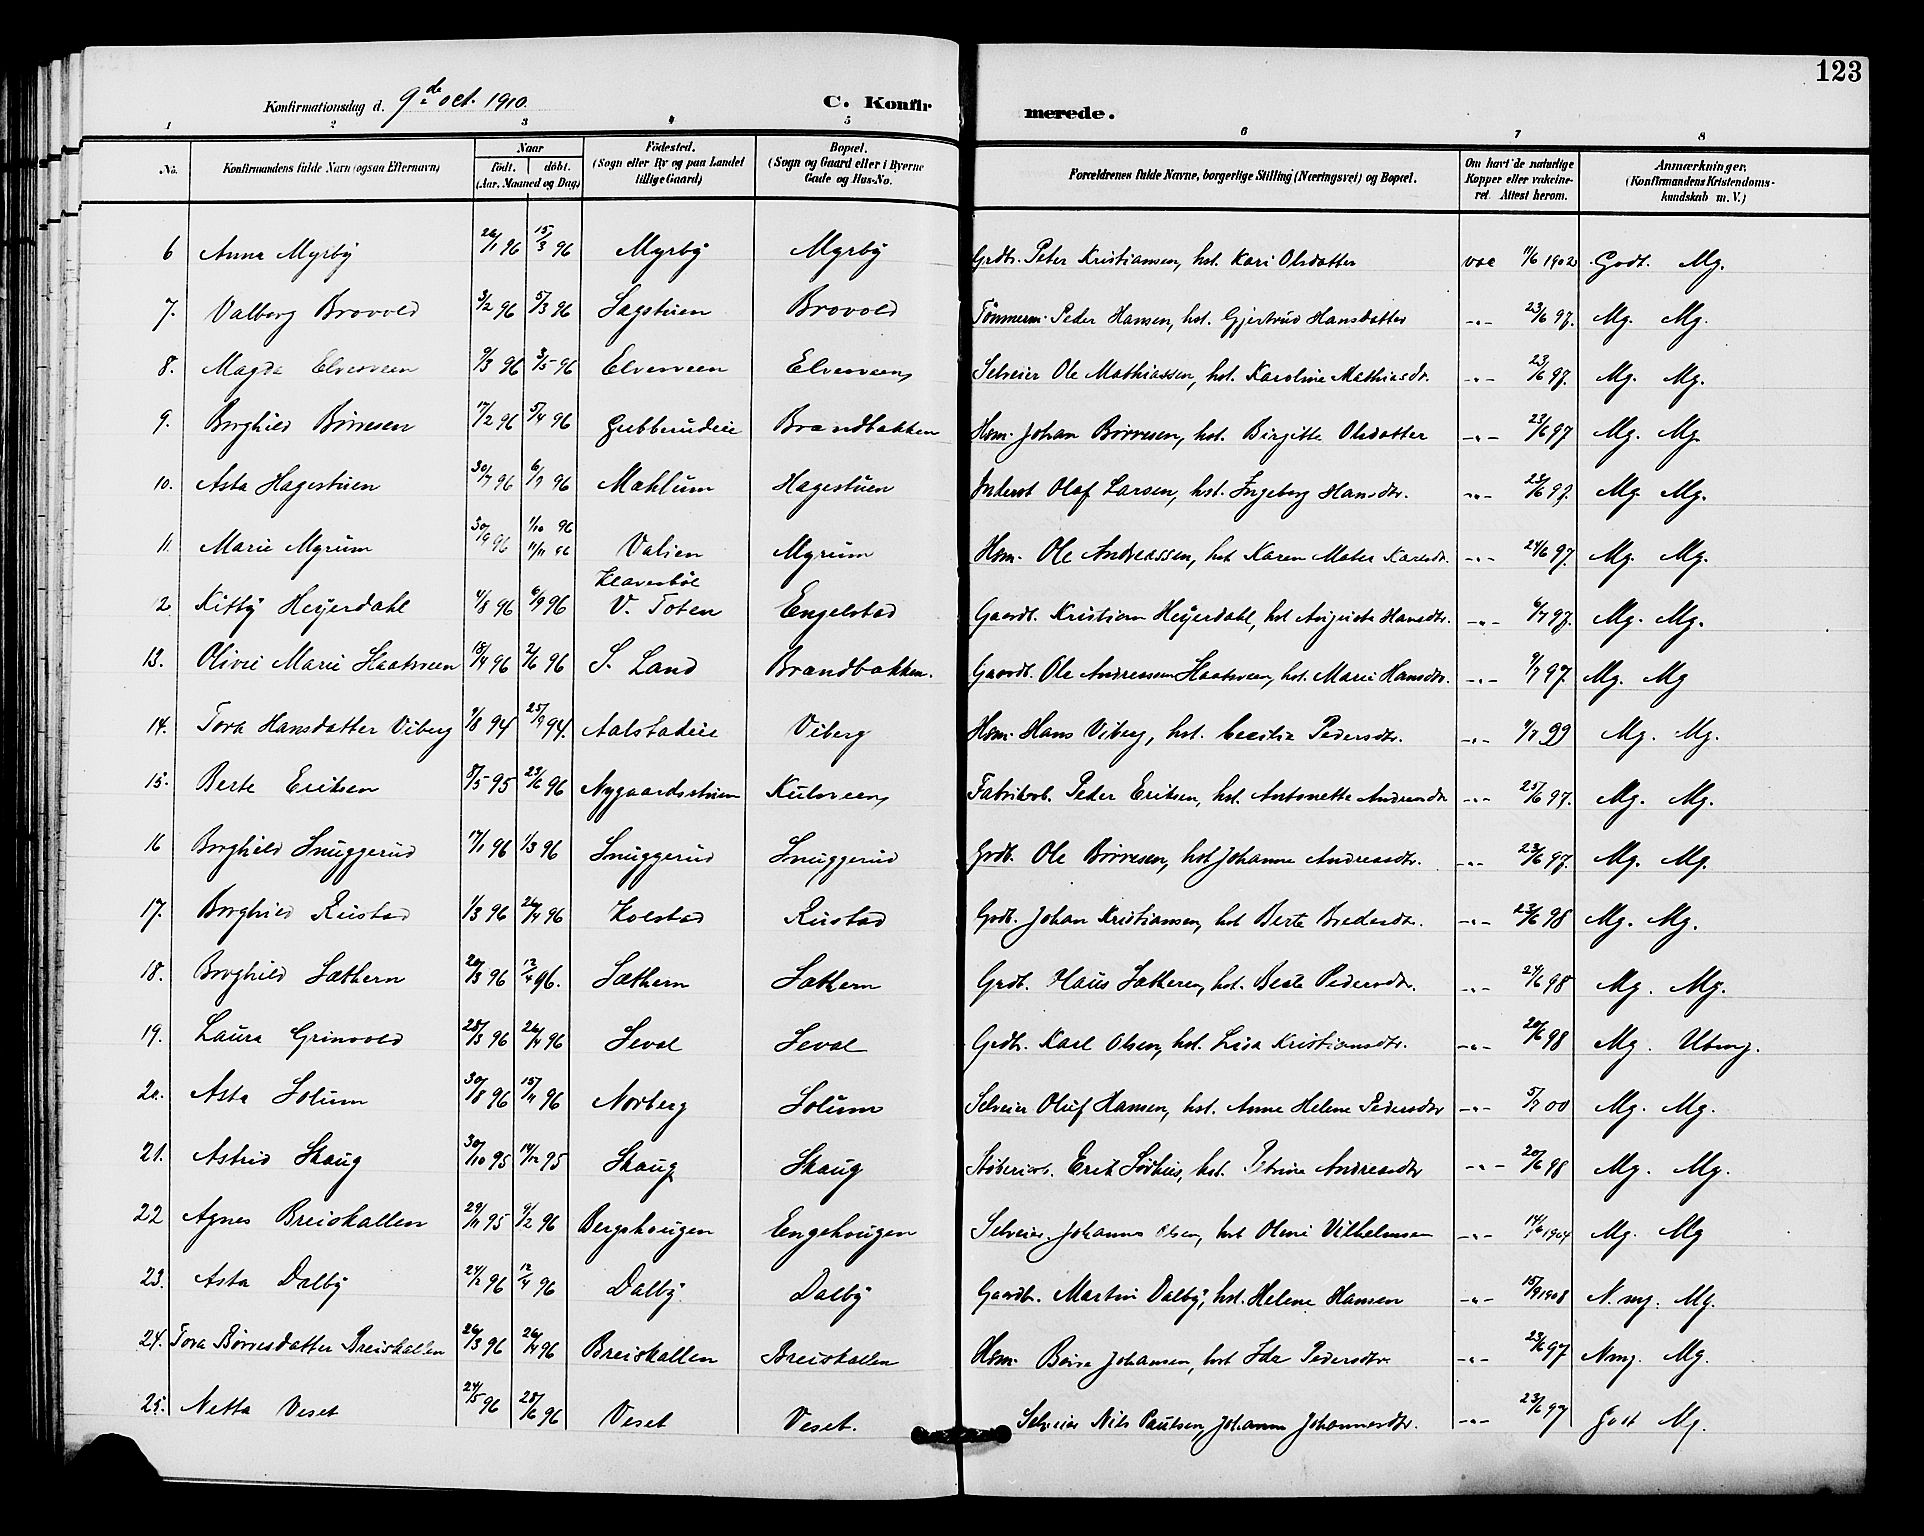 123
Konfirmationsdag d. 9de oct. 1910.
C. Konfirmerede.
1 2 3 4 5 6 7 8
No.
Konfirmandens fulde Navn (ogsaa Efternavn)
Naar født. døbt. (Aar, Maaned og Dag)
Fødested. (Sogn eller By og paa Landet tillige Gaard)
Bopæl. (Sogn og Gaard eller i Byerne Gade og Hus-No.
Forældrenes fulde Navne, borgerlige Stilling (Næringsvei) og Bopæl.
Om havt de naturlige Kopper eller vakcineret. Attest herom.
Anmærkninger. (Konfirmandens Kristendomskundskab m. V.)
6 Anna Myrby 26/1 96 15/3 96 Myrby Myrby Grdbr. Peter Kristiansen, hst. Kari Olsdatter vac 11/6 1902 Godt. Mg.
7. Valborg Brovold 3/2 96 5/3 96 Sagstuen Brovold Tømmerm. Peder Hansen, hst. Gjertrud Hansdatter -"- 23/6 97. Mg. Mg.
8. Magda Elvesveen 9/3 96 3/5 96 Elvesveen Elvesveen Selveier Ole Mathiassen, hst. Karoline Mathiasdr. -"- 23/6 97. Mg. Mg.
9. Borghild Børresen 17/2 96 5/4 96 Gubberudeie Brandbakken Hsm. Johan Børresen, hst. Birgitte Olsdatter -"- 23/6 97 Mg. Mg.
10. Asta Hagestuen 30/7 96 6/9 96 Mæhlum Hagestuen Olaf Larsen, hst. Ingeborg Hansdtr. -"- 23/6 97. Mg. Mg.
11. Marie Myrum 30/9 96 1/10 96 11/11 96 Valien Myrum Hsm. Ole Andreassen, hst Karen Mater Karlsdr. -"- 24/6 97. Mg. Mg.
Klavesbøl
12 Kitty Heyerdahl 4/8 96 6/9 96 V. Toten Engelstad Gaardb. Kristian Heyerdahl, hst Auguste Hansdtr. -"- 6/7 97. Mg. Mg.
13. Olivie Marie Haatveen 18/4 96 2/6 96 S. Land Brandbakken. Gaardb. Ole Andreassen Haatveen, hst. Marie Hansdtr. -"- 9/7 97. Mg. Mg
14. Tora Hansdatter Viberg 9/8 94 25/9 94. Aalstadeie Viberg Hsm. Hans Viberg, hst. Cecilie Pedersdtr. -"- 4/7 99 Mg. Mg.
15. Berte Eriksen 8/5 95 23/6 96 Nygaardsstuen Kulsveen Fabrikarb. Peder Eriksen, hst. Antonette Andreasdtr -"- 25/6 97. Mg. Mg.
16 Borghild Snuggerud 17/1 96 1/3 96 Snuggerud Snuggerud Grdb. Ole Børresen, hst Johanne Andreasdtr. -"- 23/6 97. Mg. Mg.
17. Borghild Rustad 1/3 96 26/4 96 Kolstad Rustad Grdb. Johan Kristiansen, hst Berte Bredesdtr. -"- 23/6 98 Mg. Mg.
18. Borghild Sæthern 20/3 96 12/4 96. Sæthern Sæthern Grdb. Hans Sætheren, hst. Berte Pedersdtr. -"- 24/6 98 Mg. Mg.
19. Laura Grinvold 28/3 96 26/4 96 Seval Seval Grdbr. Karl Olsen, hst. Lisa Kristiansdtr. -"- 20/6 98 Mg. Utmg.
20. Asta Solum 30/8 96 15/11 96 Norberg Solum Selveier Oluf Hansen, hst. Anne Helene Pedersdtr -"- 5/7 00 Mg. Mg.
21. Astrid Skaug 30/10 95 14/12 95 Skaug Skaug Støberiarb. Erik Sørhus, hst. Petrine Andreasdtr -"- 20/6 98 Mg. Mg.
22 Agnes Breiskallen 29/11 95 9/2 96 Bergshougen Engehougen Selveier. Johannes Olsen, hst Oline Vilhelmsen -"- 14/6 1904 Mg. Mg
23. Asta Dalby 24/2 96 12/4 96 Dalby Dalby Gaardbr. Martin Dalby, hst. Helene Hansen -"- 15/9 1908 N.mg. Mg.
24. Tora Børresdatter Breiskallen 26/3 96 26/4 96 Breiskallen Breiskallen Hsm. Børre Johansen, hst Ida Pedersdtr -"- 23/6 97 Nmg. Mg.
25. Netta Veset 24/5 96 28/6 96 Veset Veset. Selveier Nils Paulsen, Johanne Johannesdtr. -"- 23/6 97 Godt Mg.